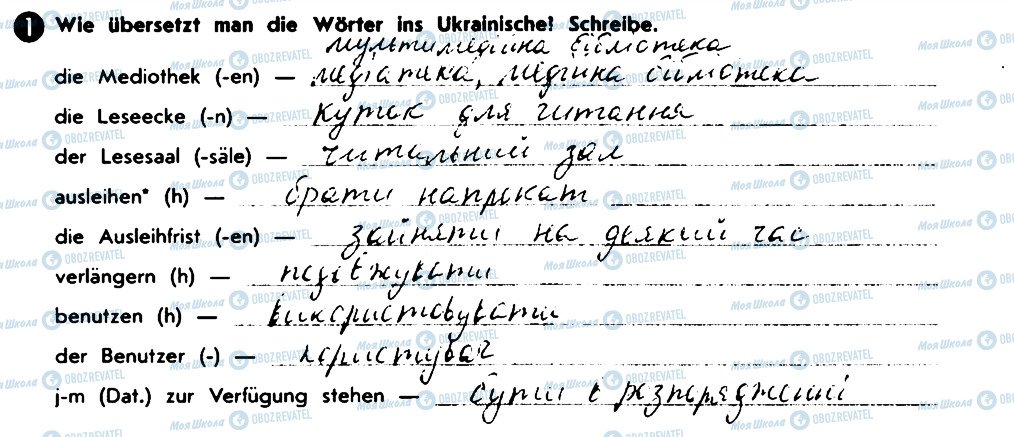 1 Wie übersetzt man die Wörter ins Ukrainische? Schreibe.
мультимедійна бібліотека
die Mediothek (-en) — медіатека, медійна бібліотека
die Leseecke (-n) — куток для читання
der Lesesaal (-säle) — читальний зал
ausleihen* (h) — брати напрокат
die Ausleihfrist (-en) — зайняти на деякий час
verlängern (h) — подовжувати
benutzen (h) — використовувати
der Benutzer (-) — користувач
j-m (Dat.) zur Verfügung stehen — бути в розпорядженні